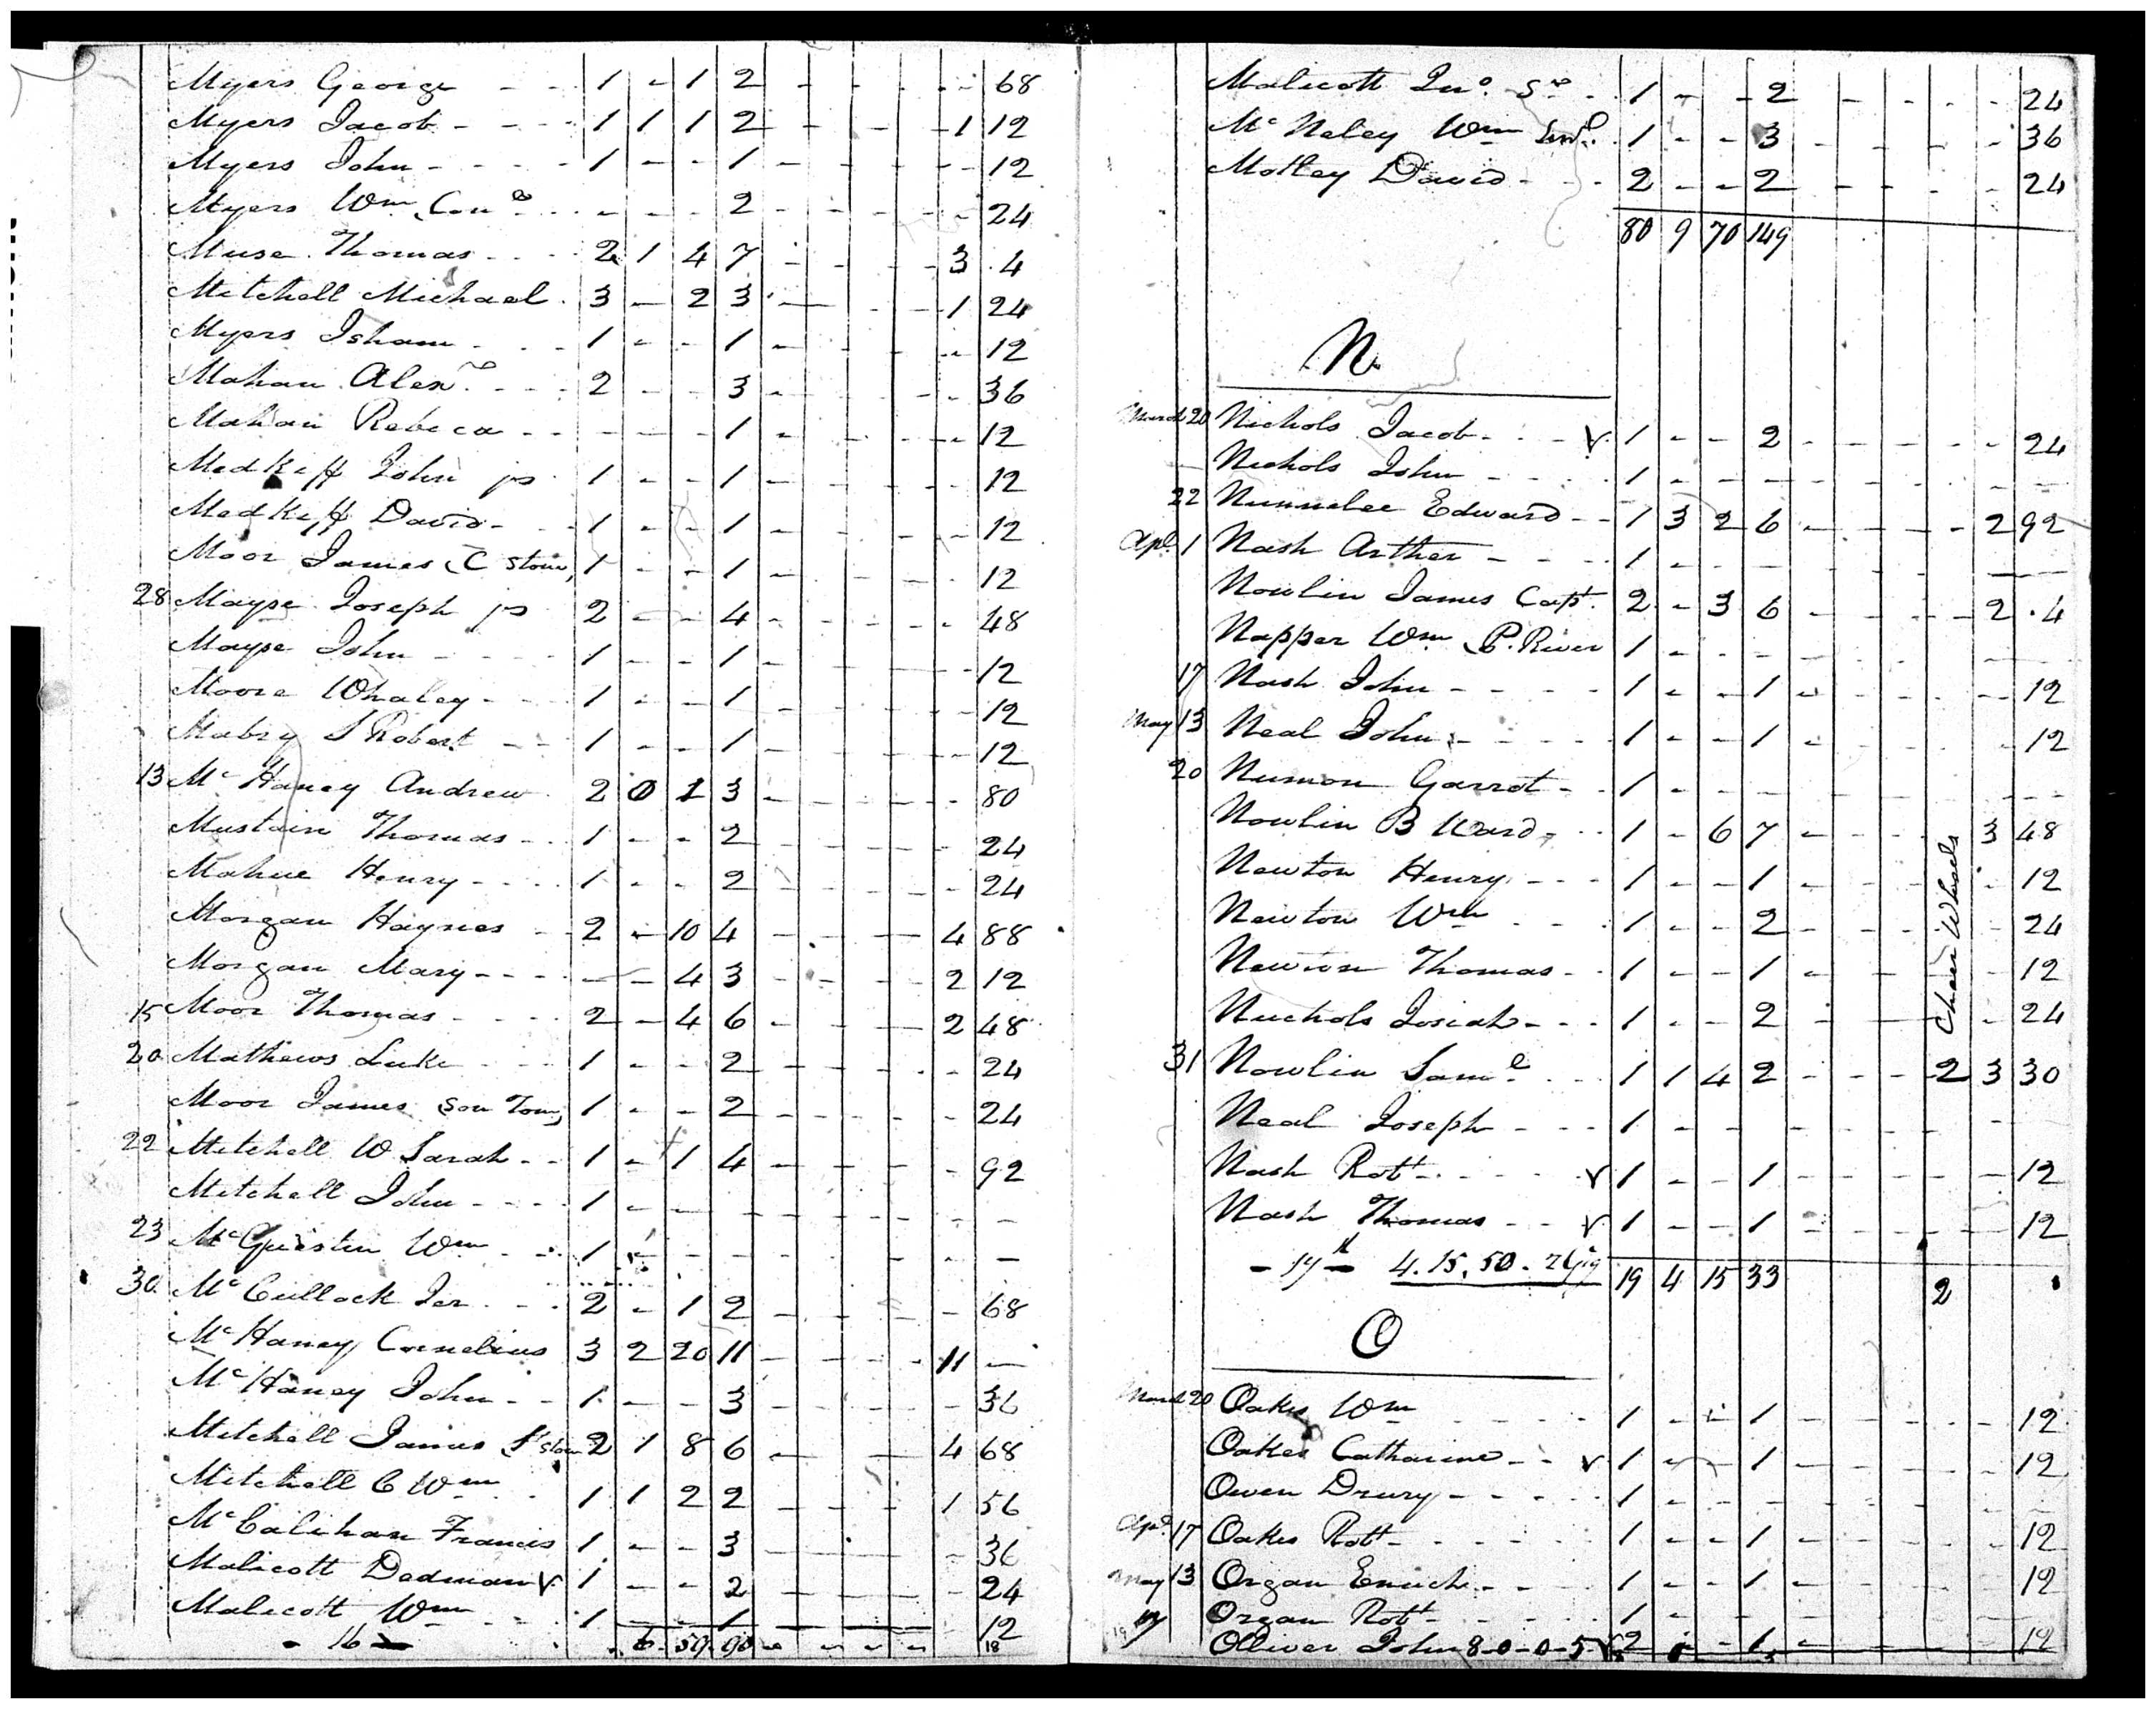 Myers George - - 1 - 1 2 - - - - - 68
Myers Jacob - - - 1 1 1 2 - - - - 1 12
Myers John - - - - 1 - - 1 - - - - - 12
Myers Wm - - - 2 - - - - - 24
Muse Thomas - - - 2 1 4 7 - - - - 3 . 4
Mitchell Michael . 3 - 2 3 - - - - 1 24
Myers Isham - - - 1 - - 1 - - - - - 12
Mahan Alexr - - - 2 - - 3 - - - - - 36
Mahan Rebeca - - - - - 1 - - - - - 12
Medkiff John jr 1 - - 1 - - - - - 12
Medkiff David - - 1 - - 1 - - - - - 12
Moor James (C Stone) 1 - - 1 - - - - - 12
28 Mayse Joseph jr 2 - - 4 - - - - - 48
Mayse John - - - - 1 - - 1 - - - - - 12
Moore Whaley - - - 1 - - 1 - - - - - 12
Mabry S Robert - - 1 - - 1 - - - - - 12
13 Mc Haney Andrew 2 0 1 3 - - - - - 80
Mustain Thomas - - 1 - - 2 - - - - - 24
Mahue Henry - - - 1 - - 2 - - - - - 24
Morgan Haynes - 2 - 10 4 - - - - 4 88
Morgan Mary - - - - - 4 3 - - - - 2 12
15 Moor Thomas - - - 2 - 4 6 - - - - 2 48
20 Mathews Luke - - - 1 - - 2 - - - - - 24
Moor James Son Tom 1 - - 2 - - - - - 24
22 Mitchell W Sarah - - 1 - 1 4 - - - - - 92
Mitchell John - - - 1 - - - - - - - -
23 Mc Guisten Wm - - 1 - - - - - - - -
30 Mc Cullock Jer - - 2 - 1 2 - - - - - 68
Mc Haney Cornelius 3 2 20 11 - - - - 11 -
Mc Haney John - - 1 - - 3 - - - - - 36
Mitchell James 2 1 8 6 - - - - 4 68
Mitchell C Wm - 1 1 2 2 - - - - 1 56
Mc Calihan Francis 1 - - 3 - - - - - 36
Malicott Dedman v 1 - - 2 - - - - - 24
Malicott Wm - - 1 - - 1 - - - - - 12
- 16 - 6 59 90 - - - - 18
Malicott Jno Sr - 1 - - 2 - - - - - 24
Mc Neley Wm 1 - - 3 - - - - - 36
Motley David - - - 2 - - 2 - - - - - 24
80 9 70 149
N.
March 20 Nichols Jacob - - - v 1 - - 2 - - - - - 24
Nichols John - - - - 1 - - - - - - - - -
22 Nunnelee Edward - - 1 3 2 6 - - - - 2 92
Apl 1 Nash Arther - - - - 1 - - - - - - -
Nowlin James Capt. 2 - 3 6 - - - - 2 . 4
Napper Wm P. River 1 - - - - - - - -
17 Nash John - - - - 1 - - 1 - - - - - 12
May 13 Neal John - - - - 1 - - 1 - - - - - 12
20 Numon Garrot - - 1 - - - - - - - -
Nowlin B Ward - - - 1 - 6 7 - - - - 3 48
Newton Henry - - - 1 - - 1 - - - - - 12
Newton Wm - - - 1 - - 2 - - - - - 24
Newton Thomas - - 1 - - 1 - - - - - 12
Chair Wheels
Nuchols Josiah - - - 1 - - 2 - - - - 24
31 Nowlin Saml - - - 1 1 4 2 - - - 2 3 30
Neal Joseph - - - 1 - - - - - - - -
Nash Robt - - - - v 1 - - 1 - - - - - 12
Nash Thomas - - v 1 - - 1 - - - - - 12
- 19 - 4. 15. 50. 2 Gig 19 4 15 33 2
O
March 20 Oakes Wm - - - - 1 - - 1 - - - - - 12
Oakes Catharine - - v 1 - - 1 - - - - - 12
Owen Drury - - - - - 1 - - - - - - - -
Apl 17 Oakes Robt - - - - - 1 - - 1 - - - - - 12
May 13 Organ Enuch - - - 1 - - 1 - - - - - 12
Organ Robt - - - - - 1 - - - - - - -
19 Olliver John 8-0-0-5 v 2 - - 1 - - - - - 12